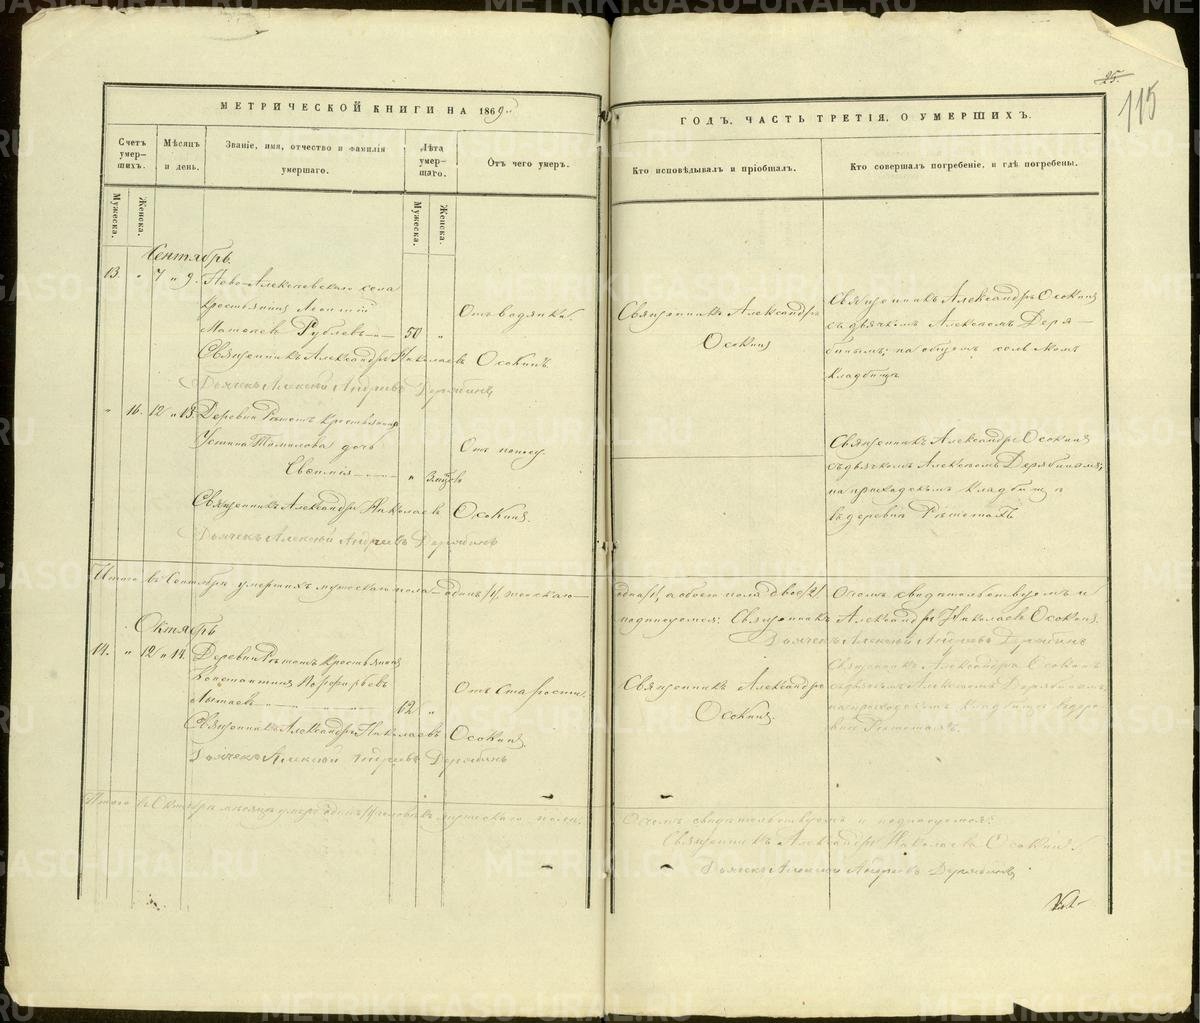 25.
115
МЕТРИЧЕСКОЙ КНИГИ НА 1869й
ГОДЪ, ЧАСТЬ ТРЕТІЯ, О УМЕРШИХЪ.
Счетъ умер-шихъ.
Мѣсяцъ и день.
Званіе, имя, отчество и фамилія умершаго.
Лѣта умер-шаго.
Отъ чего умеръ.
Кто исповѣдывалъ и пріобщалъ.
Кто совершалъ погребеніе, и гдѣ погребены.
Мужеска.
Женска.
Мужеска.
Женска.
Сентябрь.
13. " 7 и 9. Ново-Алексѣевскаго села
крестьянинъ Леонтій
Матвеевъ Рублевъ 50 "
Отъ водянки.
Священникъ Александръ
Осокинъ
Священникъ Александръ Осокинъ
съ дьячкомъ Алексѣемъ Деря-
бинымъ; на общемъ сельскомъ
кладбищѣ
Священникъ Александръ Николаевъ Осокинъ.
Дьячекъ Алексѣй Андреевъ Дерябинъ
" 16. 12 и 13. Деревни Рѣшетъ крестьянина
дочь
Евѳимія " 3 мѣсяцъ
Отъ поносу.
Священникъ Александръ Осокинъ
съ дьячкомъ Алексѣемъ Дерябинымъ;
на приходскомъ кладбищѣ
въ деревнѣ Рѣшетахъ
Священникъ Александръ Николаевъ Осокинъ.
Дьячекъ Алексѣй Андреевъ Дерябинъ
Итого въ Сентябрѣ умершихъ мужескаго пола одинъ /1/, женскаго
одна /1/, а обоего пола двое /2/ О чемъ свидѣтельствуемъ и
подписуемся: Священникъ Александръ Николаевъ Осокинъ.
Дьячекъ Алексѣй Андреевъ Дерябинъ
Октябрь
14. " 12 и 14. Деревни Рѣшетъ крестьянинъ
Константинъ Порфирьевъ
62 "
Отъ старости.
Священникъ Александръ
Осокинъ.
Священникъ Александръ Осокинъ
съ дьячкомъ Алексѣемъ Дерябинымъ,
на приходскомъ кладбищѣ въ дере-
внѣ Рѣшетахъ.
Священникъ Александръ Николаевъ Осокинъ
Дьячекъ Алексѣй Андреевъ Дерябинъ
Итого въ Октябрѣ мѣсяцѣ умеръ одинъ /1/ человѣкъ мужескаго пола.
О чемъ свидѣтельствуемъ и подписуемся:
Священникъ Александръ Николаевъ Осокинъ
Дьячекъ Алексѣй Андреевъ Дерябинъ
METRIKI.GASO-URAL.RU